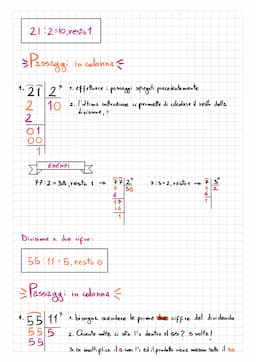 21 : 2 = 10, resto 1
Passaggi in colonna
1. 21 2 1. effettuare i passaggi spiegati precedentemente
2 10 2. l'ultima sottrazione ci permette di calcolare il resto della
2 divisione, 1
01
00
1
ESEMPI
77 : 2 = 38, resto 1 → 77 2 7 : 3 = 2, resto 1 → 7 3
6 38 6 2
17 1
16
1
Divisione a due cifre:
55 : 11 = 5, resto 0
Passaggi in colonna
1. 55 11 1. bisogna considerare le prime due cifre del dividendo
55 5 2. Quante volte ci sta l'11 dentro al 55? 5 volte!
55 3. si moltiplica il 5 con l'11 ed il prodotto viene messo sotto il 55